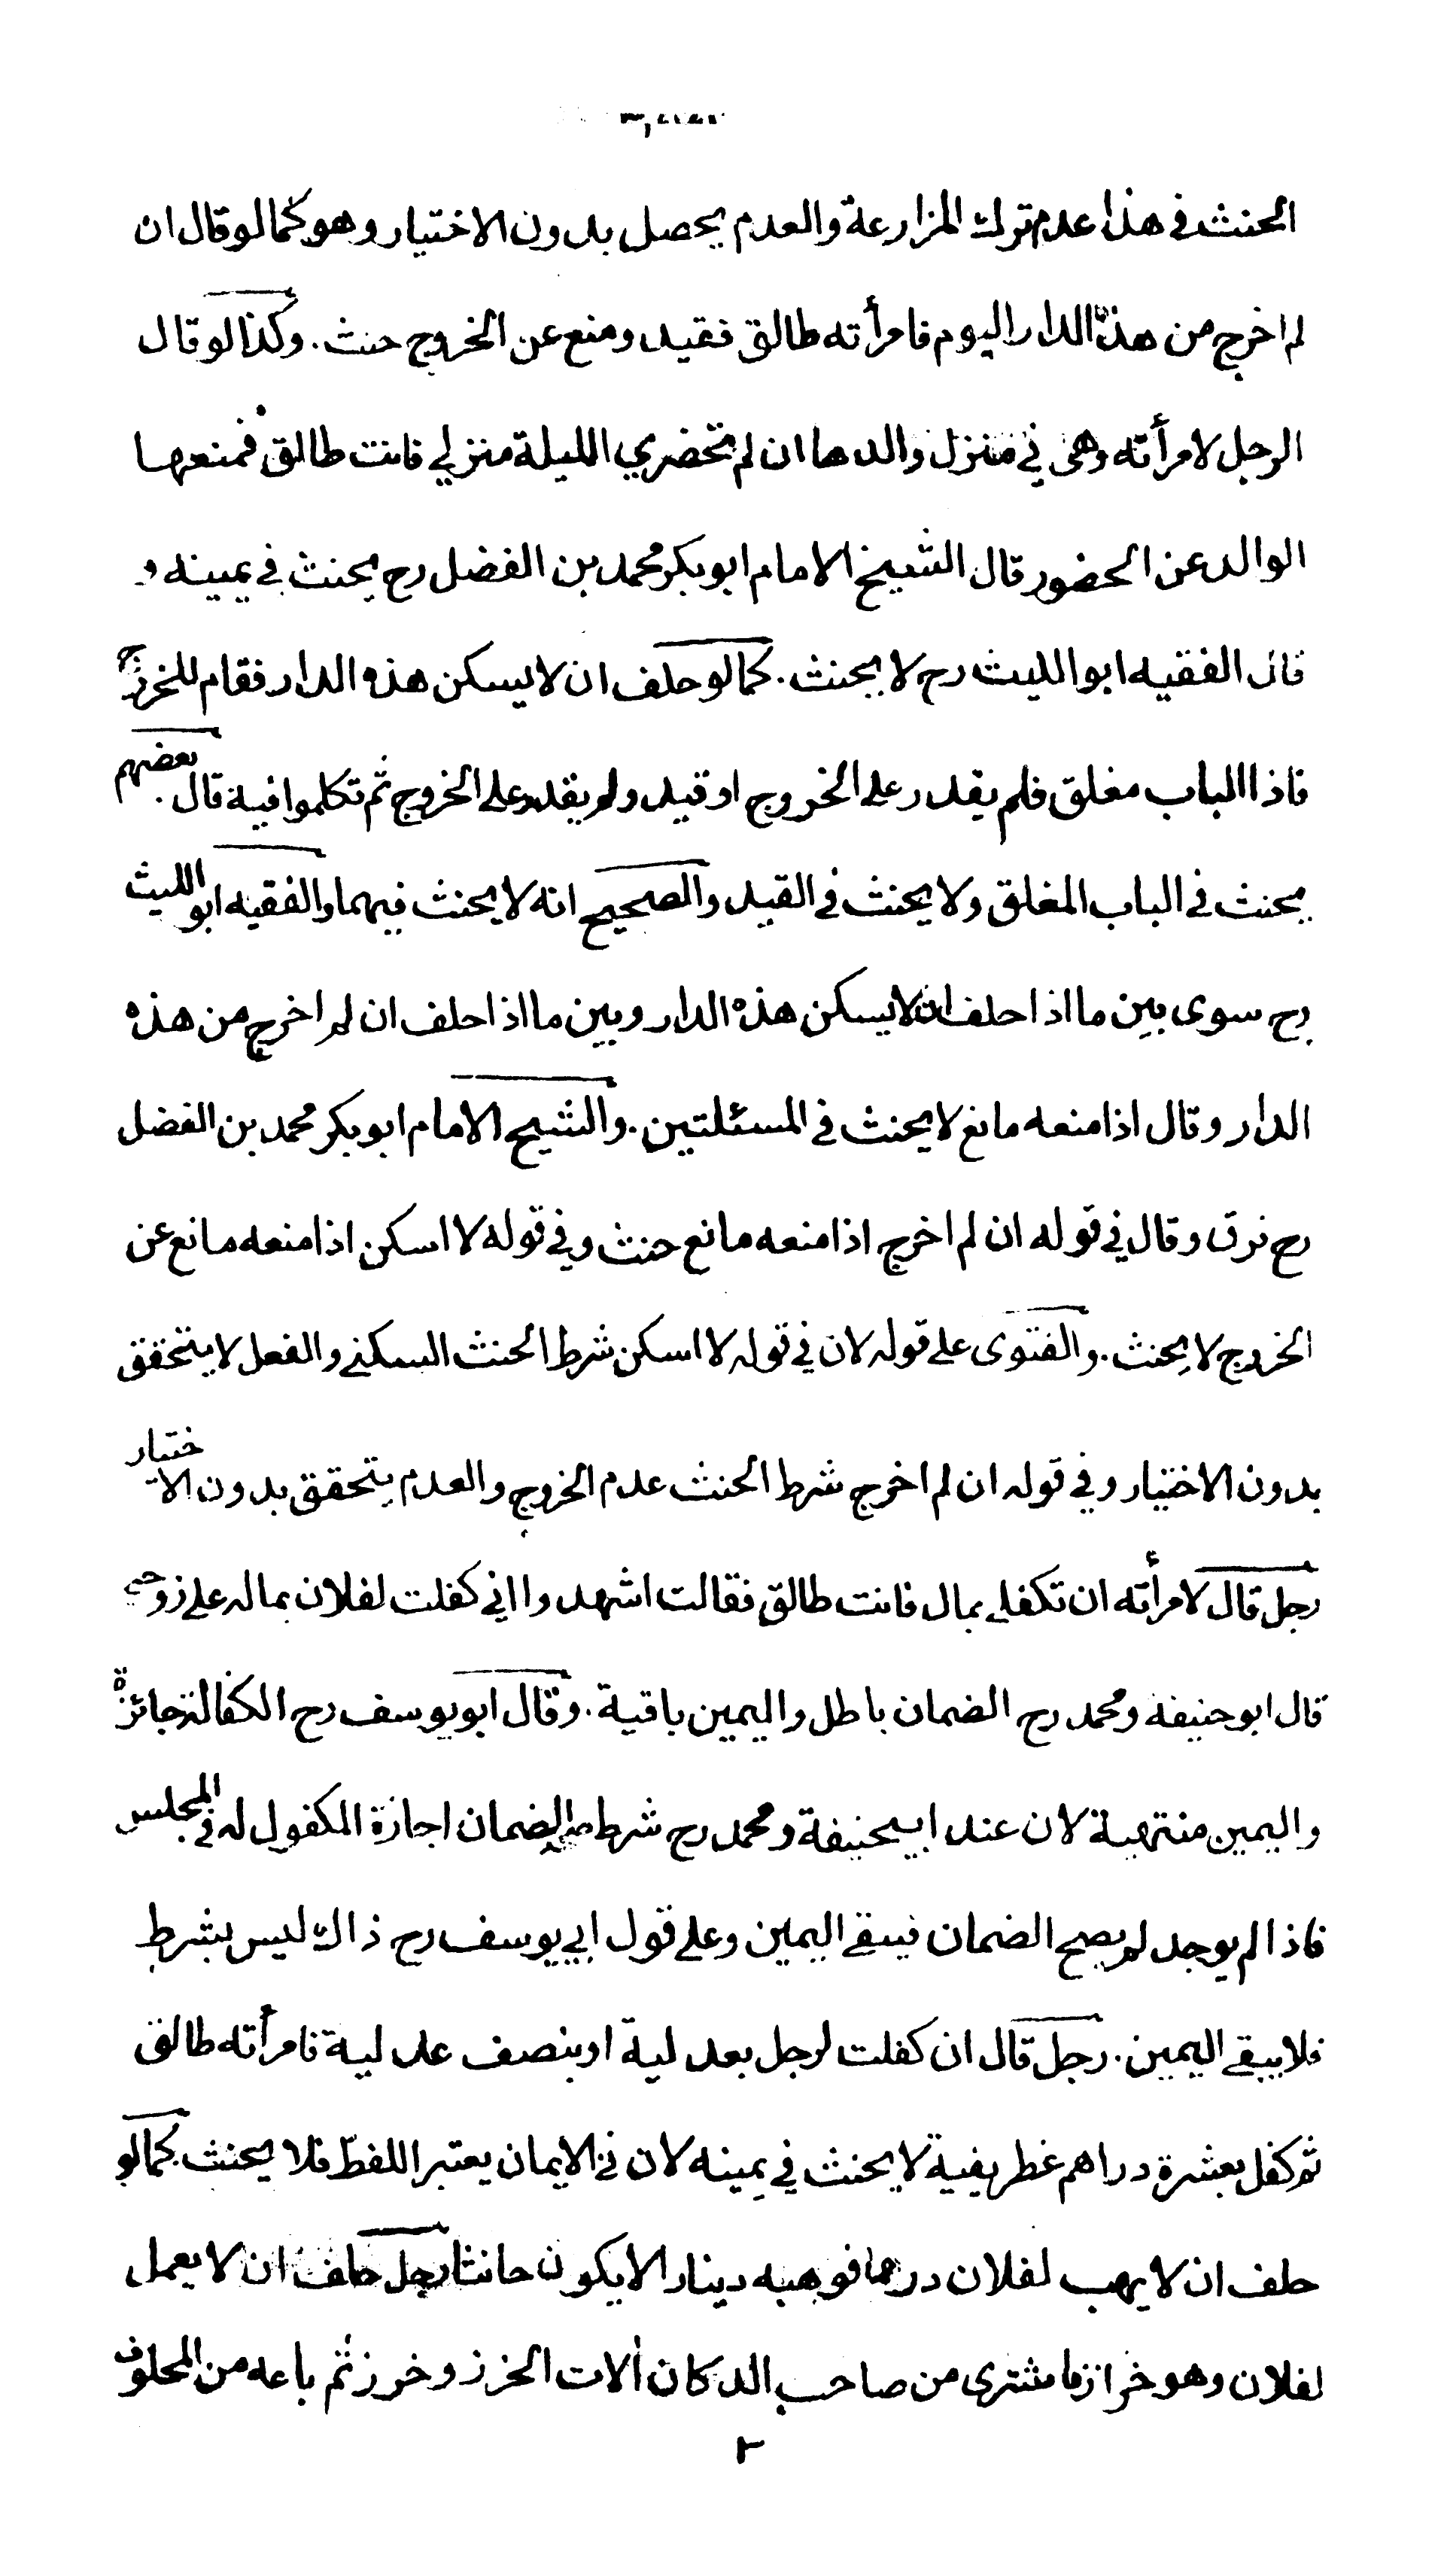 الحنث في هذا عدم ترك المزارعة والعدم يحصل بدون الاختيار وهو كما لو قال ان
لم اخرج من هذه الدار اليوم فامرأته طالق فقيد ومنع عن الخروج حنث . وكذا لو قال
الرجل لامرأته وهي في منزل والدها ان لم تحضري الليلة منزلي فانت طالق فمنعها
الوالد عن الحضور قال الشيخ الامام ابو بكر محمد بن الفضل رح يحنث في يمينه و
قال الفقيه ابو الليث رح لا يحنث . كما لو حلف ان لا يسكن هذه الدار فقام للخروج
فاذا الباب مغلق فلم يقدر على الخروج او قيد ولم يقدر على الخروج ثم تكلموا فيه قال بعضهم
يحنث في الباب المغلق ولا يحنث في القيد والصحيح انه لا يحنث فيهما والفقيه ابو الليث
رح سوى بين ما اذا حلف ان لا يسكن هذه الدار وبين ما اذا حلف ان لم اخرج من هذه
الدار وقال اذا منعه مانع لا يحنث في المسئلتين . والشيخ الامام ابو بكر محمد بن الفضل
رح فرق وقال في قوله ان لم اخرج اذا منعه مانع حنث وفي قوله لا اسكن اذا منعه مانع عن
الخروج لا يحنث . والفتوى على قوله لان في قوله لا اسكن شرط الحنث السكنى والفعل لا يتحقق
بدون الاختيار وفي قوله ان لم اخرج شرط الحنث عدم الخروج والعدم يتحقق بدون الاختيار
رجل قال لامرأته ان تكفلي بمال فانت طالق فقالت اشهدوا اني كفلت لفلان بماله على زوجي
قال ابو حنيفة ومحمد رح الضمان باطل واليمين باقية . وقال ابو يوسف رح الكفالة جائزة
واليمين منتهية لان عند ابيحنيفة ومحمد رح شرط الضمان اجازة المكفول له في المجلس
فاذا لم يوجد لم يصح الضمان فيبقى اليمين وعلى قول ابي يوسف رح ذاك ليس بشرط
فلا يبقى اليمين . رجل قال ان كفلت لرجل بعد لية او بنصف عد لية فامرأته طالق
ثم كفل بعشرة دراهم غطريفية لا يحنث في يمينه لان في الايمان يعتبر اللفظ فلا يحنث كما لو
حلف ان لا يهب لفلان درهما فوهبه دينارا لا يكون حانثا رجل حلف ان لا يعمل
لفلان وهو خراز فاشترى من صاحب الدكان آلات الخرز وخرز ثم باعه من المحلوف
٢